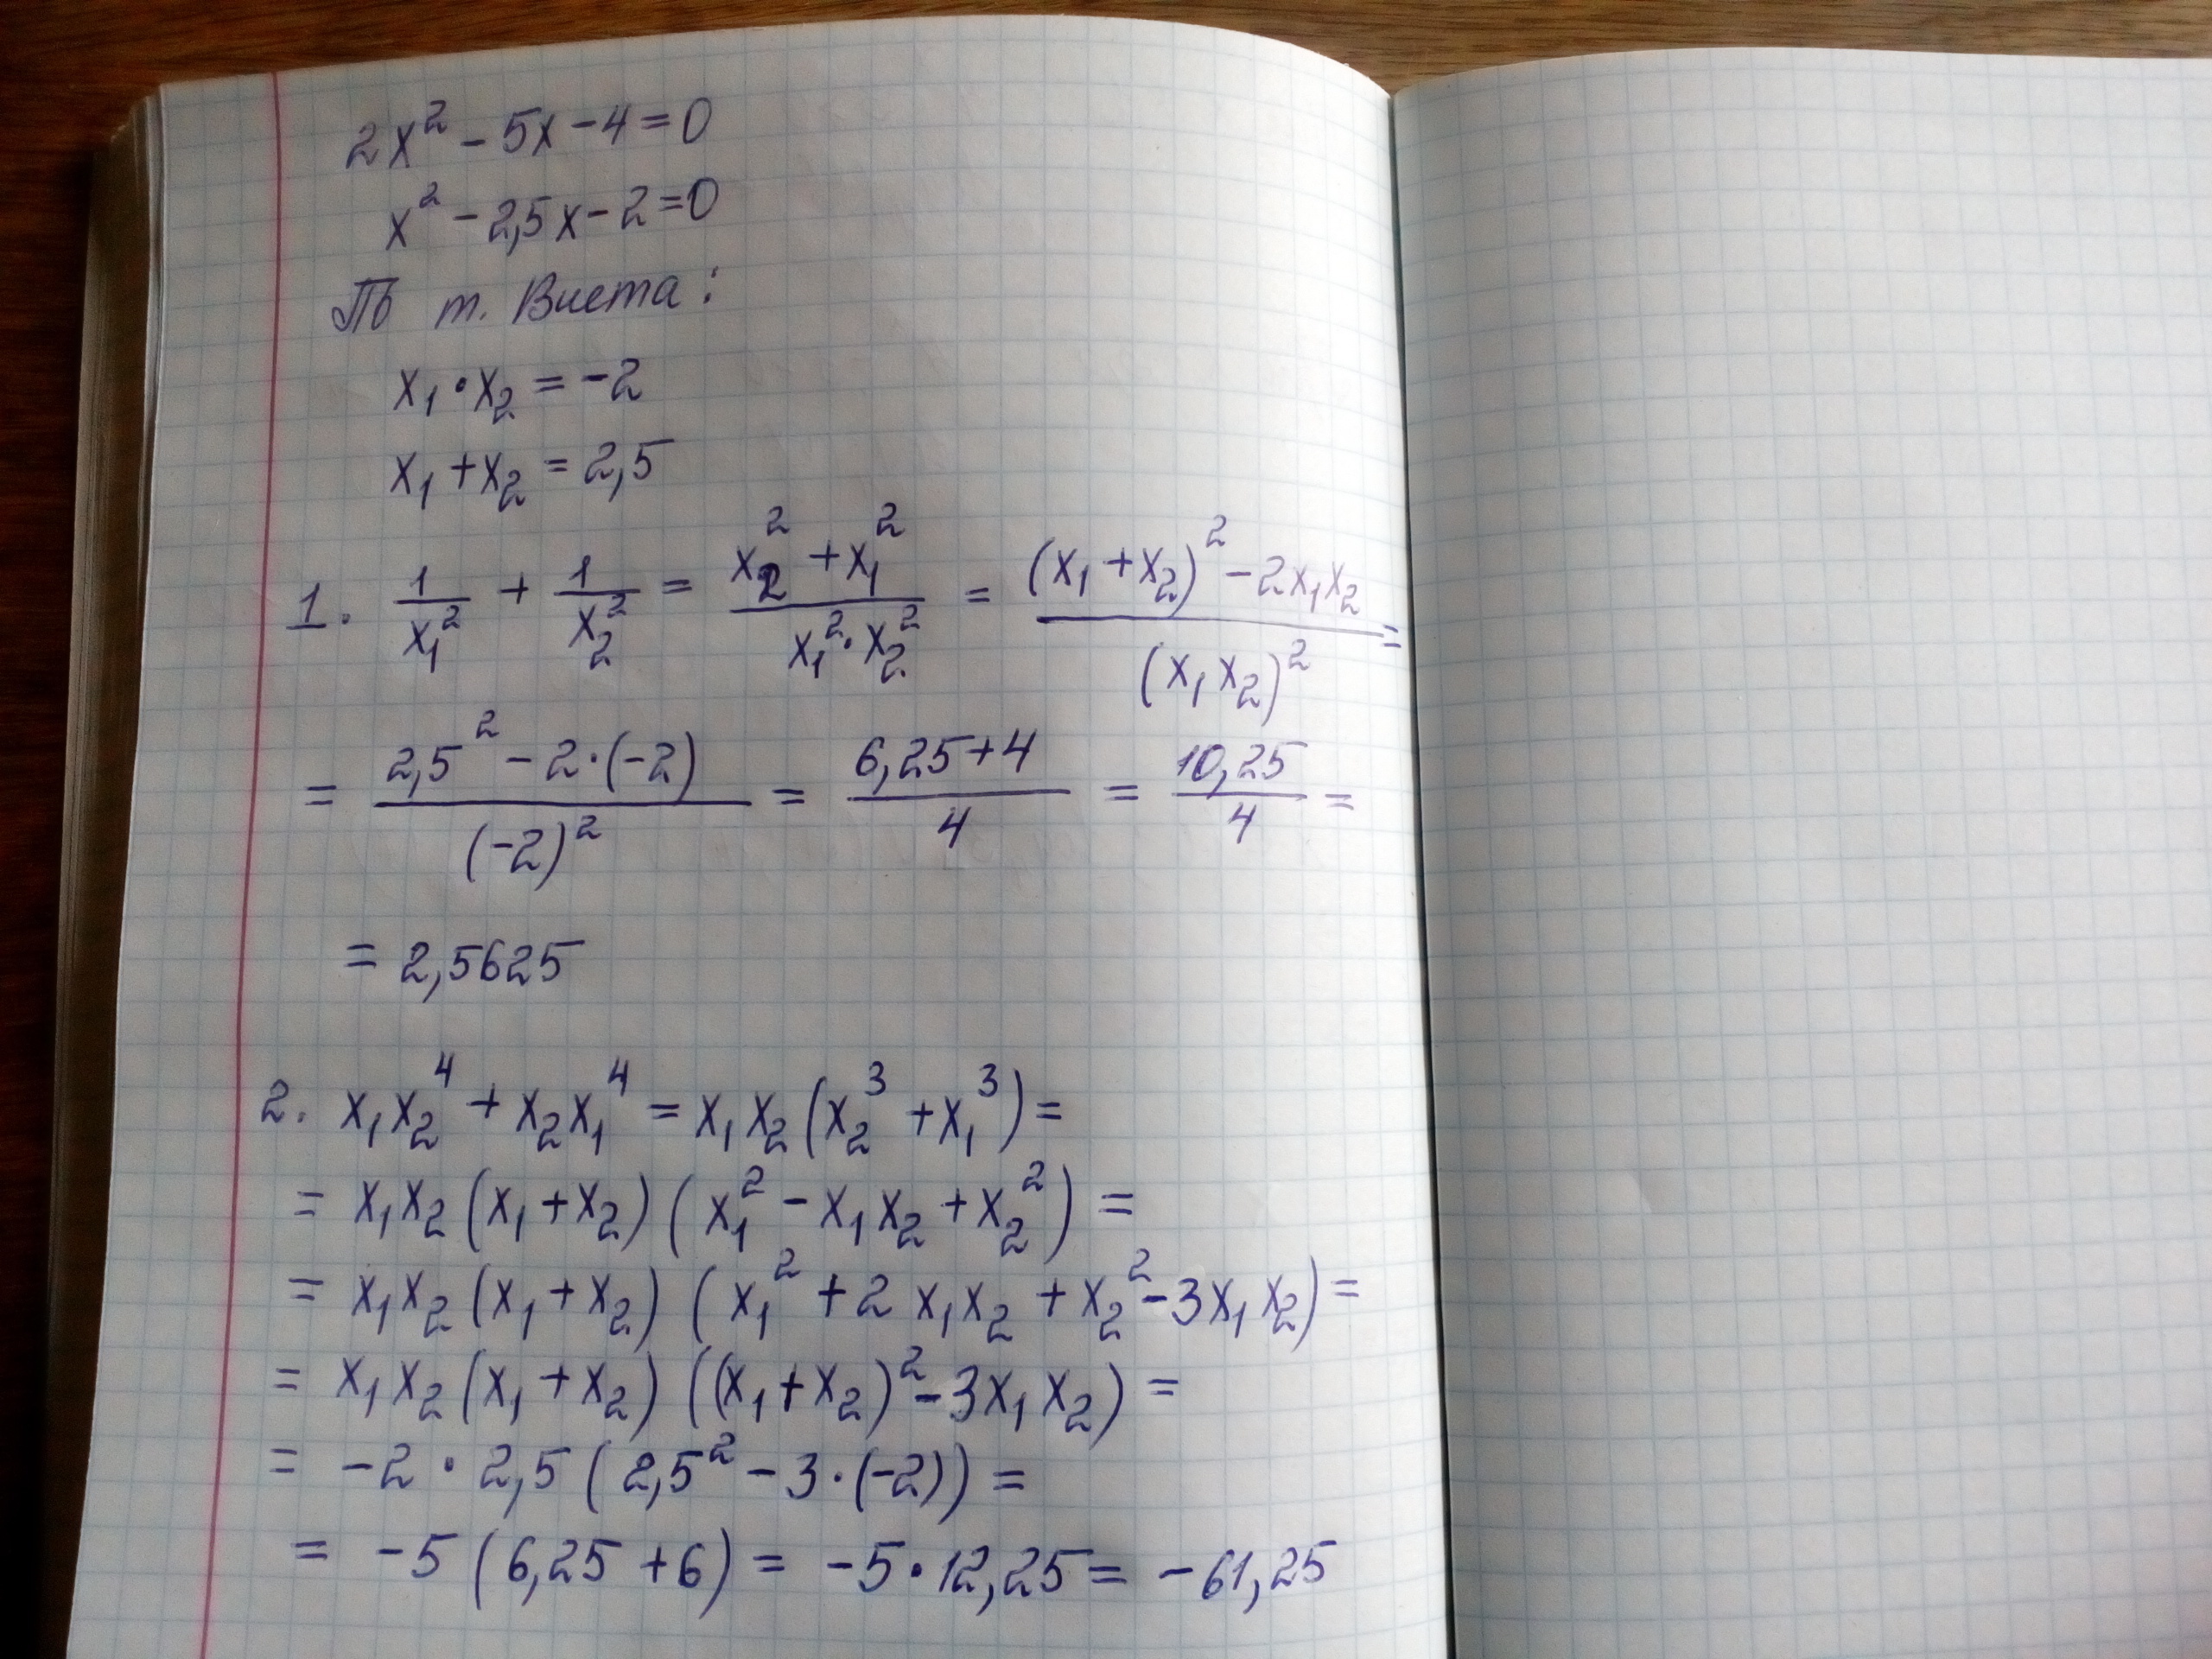 2x² - 5x - 4 = 0
x² - 2,5x - 2 = 0
По т. Виета:
x₁ · x₂ = -2
x₁ + x₂ = 2,5
1. 1/x₁² + 1/x₂² = (x₂² + x₁²)/(x₁² · x₂²) = ((x₁ + x₂)² - 2x₁x₂)/(x₁x₂)² =
= (2,5² - 2 · (-2))/(-2)² = (6,25 + 4)/4 = 10,25/4 =
= 2,5625
2. x₁x₂⁴ + x₂x₁⁴ = x₁x₂(x₂³ + x₁³) =
= x₁x₂(x₁ + x₂)(x₁² - x₁x₂ + x₂²) =
= x₁x₂(x₁ + x₂)(x₁² + 2x₁x₂ + x₂² - 3x₁x₂) =
= x₁x₂(x₁ + x₂)((x₁ + x₂)² - 3x₁x₂) =
= -2 · 2,5(2,5² - 3 · (-2)) =
= -5(6,25 + 6) = -5 · 12,25 = -61,25